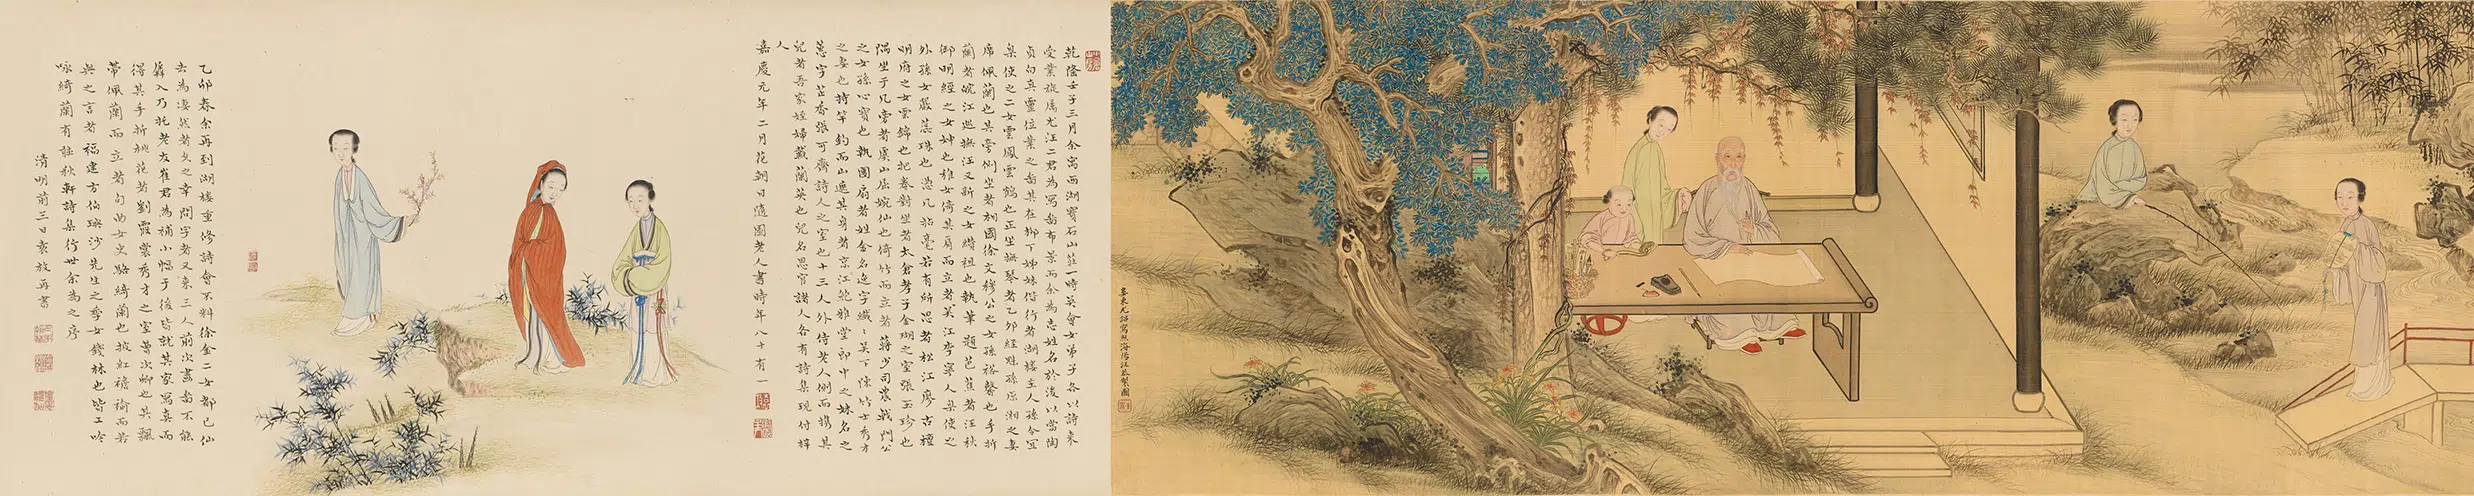 婁東尤詔寫照海陽汪恭製圖
乾隆壬子三月余寓西湖寶石山莊一時吳會女弟子各以詩來
受業旋屬尤汪二君為寫啚布景而余為志姓名於後以當陶
貞白真靈位業之啚其在柳下姊妹偕行者湖樓主人孫令宜
臬使之二女雲鳳雲鶴也正坐撫琴者乙卯經魁孫原湘之妻
席佩蘭也其旁側坐者相國徐文穆公之女孫裕馨也手折
蘭者皖江巡撫汪又新之女纘祖也執筆題芭蕉者汪秋
御明經之女妽也稚女倚其肩而立者吳江李寧人臬使之
外孫女嚴蕊珠也憑几拈毫若有所思者松江廖古檀
明府之女雲錦也把卷對坐者太倉孝子金瑚之室張玉珍也
隅坐于几旁者虞山屈婉仙也倚竹而立者蔣少司農戟門公
之女孫心寶也執團扇者姓金名逸字纖纖吳下陳竹士秀才
之妻也持竿釣而山遮其身者京江鮑雅堂郎中之妹名之
蕙字芷香張可齋詩人之室也十三人外侍老人側而攜其
兒者吾家姪婦戴蘭英也兒名恩官諸人各有詩集現付梓
人
嘉慶元年二月花朝日隨園老人書時年八十有一
乙卯春余再到湖樓重修詩會不料徐金二女都已仙
去為凄然者久之幸問字者又來三人前次畫啚不能
羼入乃托老友崔君為補小幅于後皆就其家寫真而
得其手折桃花者劉霞裳秀才之室曹次卿也其飄
帶佩蘭而立者句曲女史駱綺蘭也披紅襜褕而若
與之言者福建方伯璵沙先生之季女錢林也皆工吟
咏綺蘭有聽秋軒詩集行世余為之序
清明前三日袁枚再書